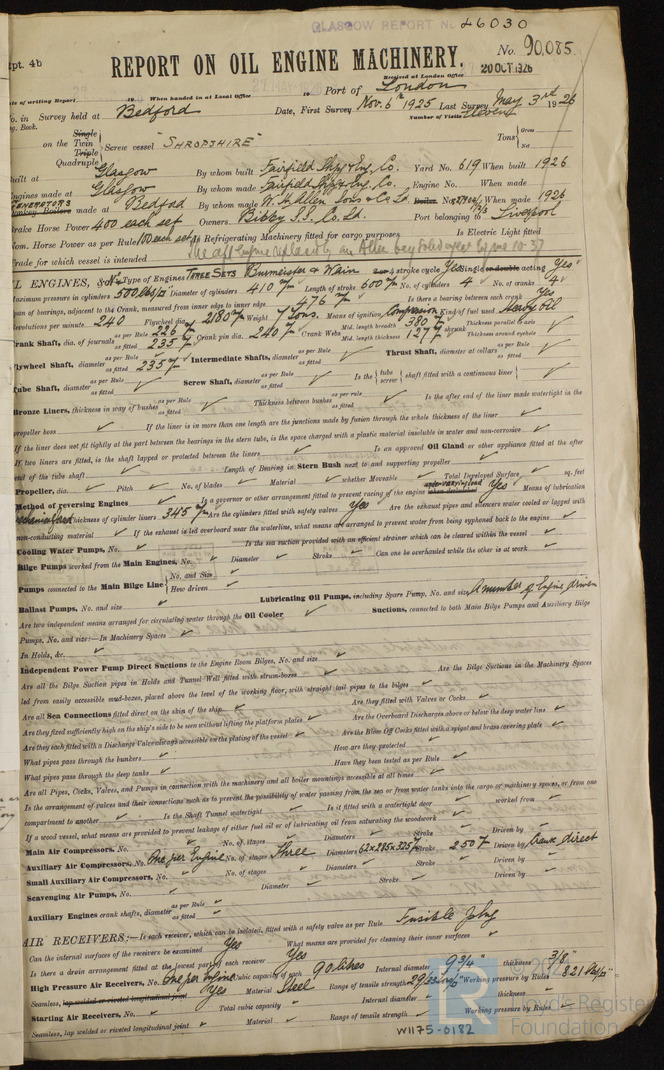 GLASGOW REPORT No. 46030
Rpt. 4b
REPORT ON OIL ENGINE MACHINERY.
No. 90,085.
20 OCT 1926
Received at London Office
Date of writing Report 19 When handed in at Local Office 19 Port of London
No. in Survey held at Bedford Date, First Survey Nov. 6th 1925 Last Survey May 3rd 1926
Reg. Book. Number of Visits Eleven
on the Single Twin Triple Quadruple Screw vessel "SHROPSHIRE" Tons Gross Net
Built at Glasgow By whom built Fairfield Shpg & Eng. Co. Yard No. 619 When built 1926
Engines made at Glasgow By whom made Fairfield Shpg & Eng. Co. Engine No. When made
GENERATORS Donkey Boilers made at Bedford By whom made W. H. Allen Sons & Co Ld. Boiler No. When made 1926
Brake Horse Power 400 each set Owners Bibby S.S. Co. Ld. Port belonging to Liverpool
Nom. Horse Power as per Rule 100 each set Is Refrigerating Machinery fitted for cargo purposes Is Electric Light fitted
Trade for which vessel is intended
OIL ENGINES, &c. Type of Engines THREE SETS Burmeister & Wain 2 or 4 stroke cycle Yes Single or double acting Yes
Maximum pressure in cylinders 500 lbs/□" Diameter of cylinders 410 m/m Length of stroke 600 m/m No. of cylinders 4 No. of cranks 4
Span of bearings, adjacent to the Crank, measured from inner edge to inner edge 476 m/m Is there a bearing between each crank Yes
Revolutions per minute 240 Flywheel dia. 2180 m/m Weight 7 Tons. Means of ignition Compression Kind of fuel used Heavy oil
Crank Shaft, dia. of journals as per Rule 226 m/m as fitted 235 m/m Crank pin dia. 240 m/m Crank Webs Mid. length breadth 380 m/m Mid. length thickness 127 m/m shrunk Thickness parallel to axis Thickness around eyehole
Flywheel Shaft, diameter as per Rule as fitted 235 m/m Intermediate Shafts, diameter as per Rule as fitted Thrust Shaft, diameter at collars as per Rule as fitted
Tube Shaft, diameter as per Rule as fitted Screw Shaft, diameter as per Rule as fitted Is the tube screw shaft fitted with a continuous liner
Bronze Liners, thickness in way of bushes as per Rule as fitted Thickness between bushes as per rule as fitted Is the after end of the liner made watertight in the
propeller boss If the liner is in more than one length are the junctions made by fusion through the whole thickness of the liner
If the liner does not fit tightly at the part between the bearings in the stern tube, is the space charged with a plastic material insoluble in water and non-corrosive
If two liners are fitted, is the shaft lapped or protected between the liners Is an approved Oil Gland or other appliance fitted at the after
end of the tube shaft Length of Bearing in Stern Bush next to and supporting propeller
Propeller, dia. Pitch No. of blades Material whether Moveable Total Developed Surface sq. feet
Method of reversing Engines Is a governor or other arrangement fitted to prevent racing of the engine when declutched under varying load Yes Means of lubrication
Thickness of cylinder liners 34.5 m/m Are the cylinders fitted with safety valves Yes Are the exhaust pipes and silencers water cooled or lagged with
non-conducting material If the exhaust is led overboard near the waterline, what means are arranged to prevent water from being syphoned back to the engine
Cooling Water Pumps, No. Is the sea suction provided with an efficient strainer which can be cleared within the vessel
Bilge Pumps worked from the Main Engines, No. Diameter Stroke Can one be overhauled while the other is at work
Pumps connected to the Main Bilge Line No. and Size How driven
Ballast Pumps, No. and size Lubricating Oil Pumps, including Spare Pump, No. and size A number of Engine driven
Are two independent means arranged for circulating water through the Oil Cooler Suctions, connected to both Main Bilge Pumps and Auxiliary Bilge
Pumps, No. and size:—In Machinery Spaces
In Holds, &c.
Independent Power Pump Direct Suctions to the Engine Room Bilges, No. and size
Are all the Bilge Suction pipes in Holds and Tunnel Well fitted with strum-boxes Are the Bilge Suctions in the Machinery Spaces
led from easily accessible mud-boxes, placed above the level of the working floor, with straight tail pipes to the bilges
Are all Sea Connections fitted direct on the skin of the ship Are they fitted with Valves or Cocks
Are they fixed sufficiently high on the ship's side to be seen without lifting the platform plates Are the Overboard Discharges above or below the deep water line
Are they each fitted with a Discharge Valve always accessible on the plating of the vessel Are the Blow Off Cocks fitted with a spigot and brass covering plate
What pipes pass through the bunkers How are they protected
What pipes pass through the deep tanks Have they been tested as per Rule
Are all Pipes, Cocks, Valves, and Pumps in connection with the machinery and all boiler mountings accessible at all times
Is the arrangement of valves and their connections such as to prevent the possibility of water passing from the sea or from water tanks into the cargo or machinery spaces, or from one
compartment to another Is the Shaft Tunnel watertight Is it fitted with a watertight door worked from
If a wood vessel, what means are provided to prevent leakage of either fuel oil or of lubricating oil from saturating the woodwork
Main Air Compressors, No. No. of stages Diameters Stroke Driven by
Auxiliary Air Compressors, No. One per Engine No. of stages Three Diameters 62 x 285 x 325 m/m Stroke 250 m/m Driven by Crank direct
Small Auxiliary Air Compressors, No. No. of stages Diameters Stroke Driven by
Scavenging Air Pumps, No. Diameter Stroke Driven by
Auxiliary Engines crank shafts, diameter as per Rule as fitted
AIR RECEIVERS:—Is each receiver, which can be isolated, fitted with a safety valve as per Rule Fusible Plug
Can the internal surfaces of the receivers be examined Yes What means are provided for cleaning their inner surfaces
Is there a drain arrangement fitted at the lowest part of each receiver Yes
High Pressure Air Receivers, No. One per Engine Cubic capacity of each 90 litres Internal diameter 9 3/4" thickness 3/8"
Seamless, lap welded or riveted longitudinal joint Yes Material Steel Range of tensile strength Working pressure by Rules 821 lbs/□"
Starting Air Receivers, No. Total cubic capacity Internal diameter thickness
Seamless, lap welded or riveted longitudinal joint Material Range of tensile strength Working pressure by Rules
W1175-0182
LR
Lloyd's Register
Foundation